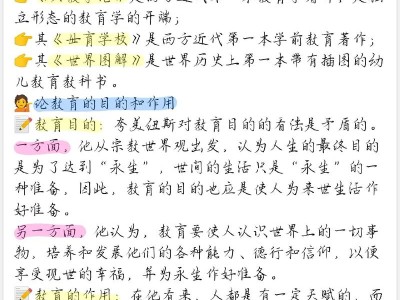 立形态的教育学的开端;
👉其《母育学校》是西方近代第一本学前教育著作;
👉其《世界图解》是世界历史上第一本带有插图的幼
儿教育教科书。
💁论教育的目的和作用
📝教育目的:夸美纽斯对教育目的的看法是矛盾的。
一方面,他从宗教世界观出发,认为人生的最终目的
是为了达到“永生”,世间的生活只是“永生”的一
种准备,因此,教育的目的也应是使人为来世生活作
好准备。
另一方面,他认为,教育要使人认识世界上的一切事
物,培养和发展他们的各种能力、德行和信仰,以便
享受现世的幸福,并为永生作好准备。
📝教育的作用:在他看来,人都是有一定天赋的,而